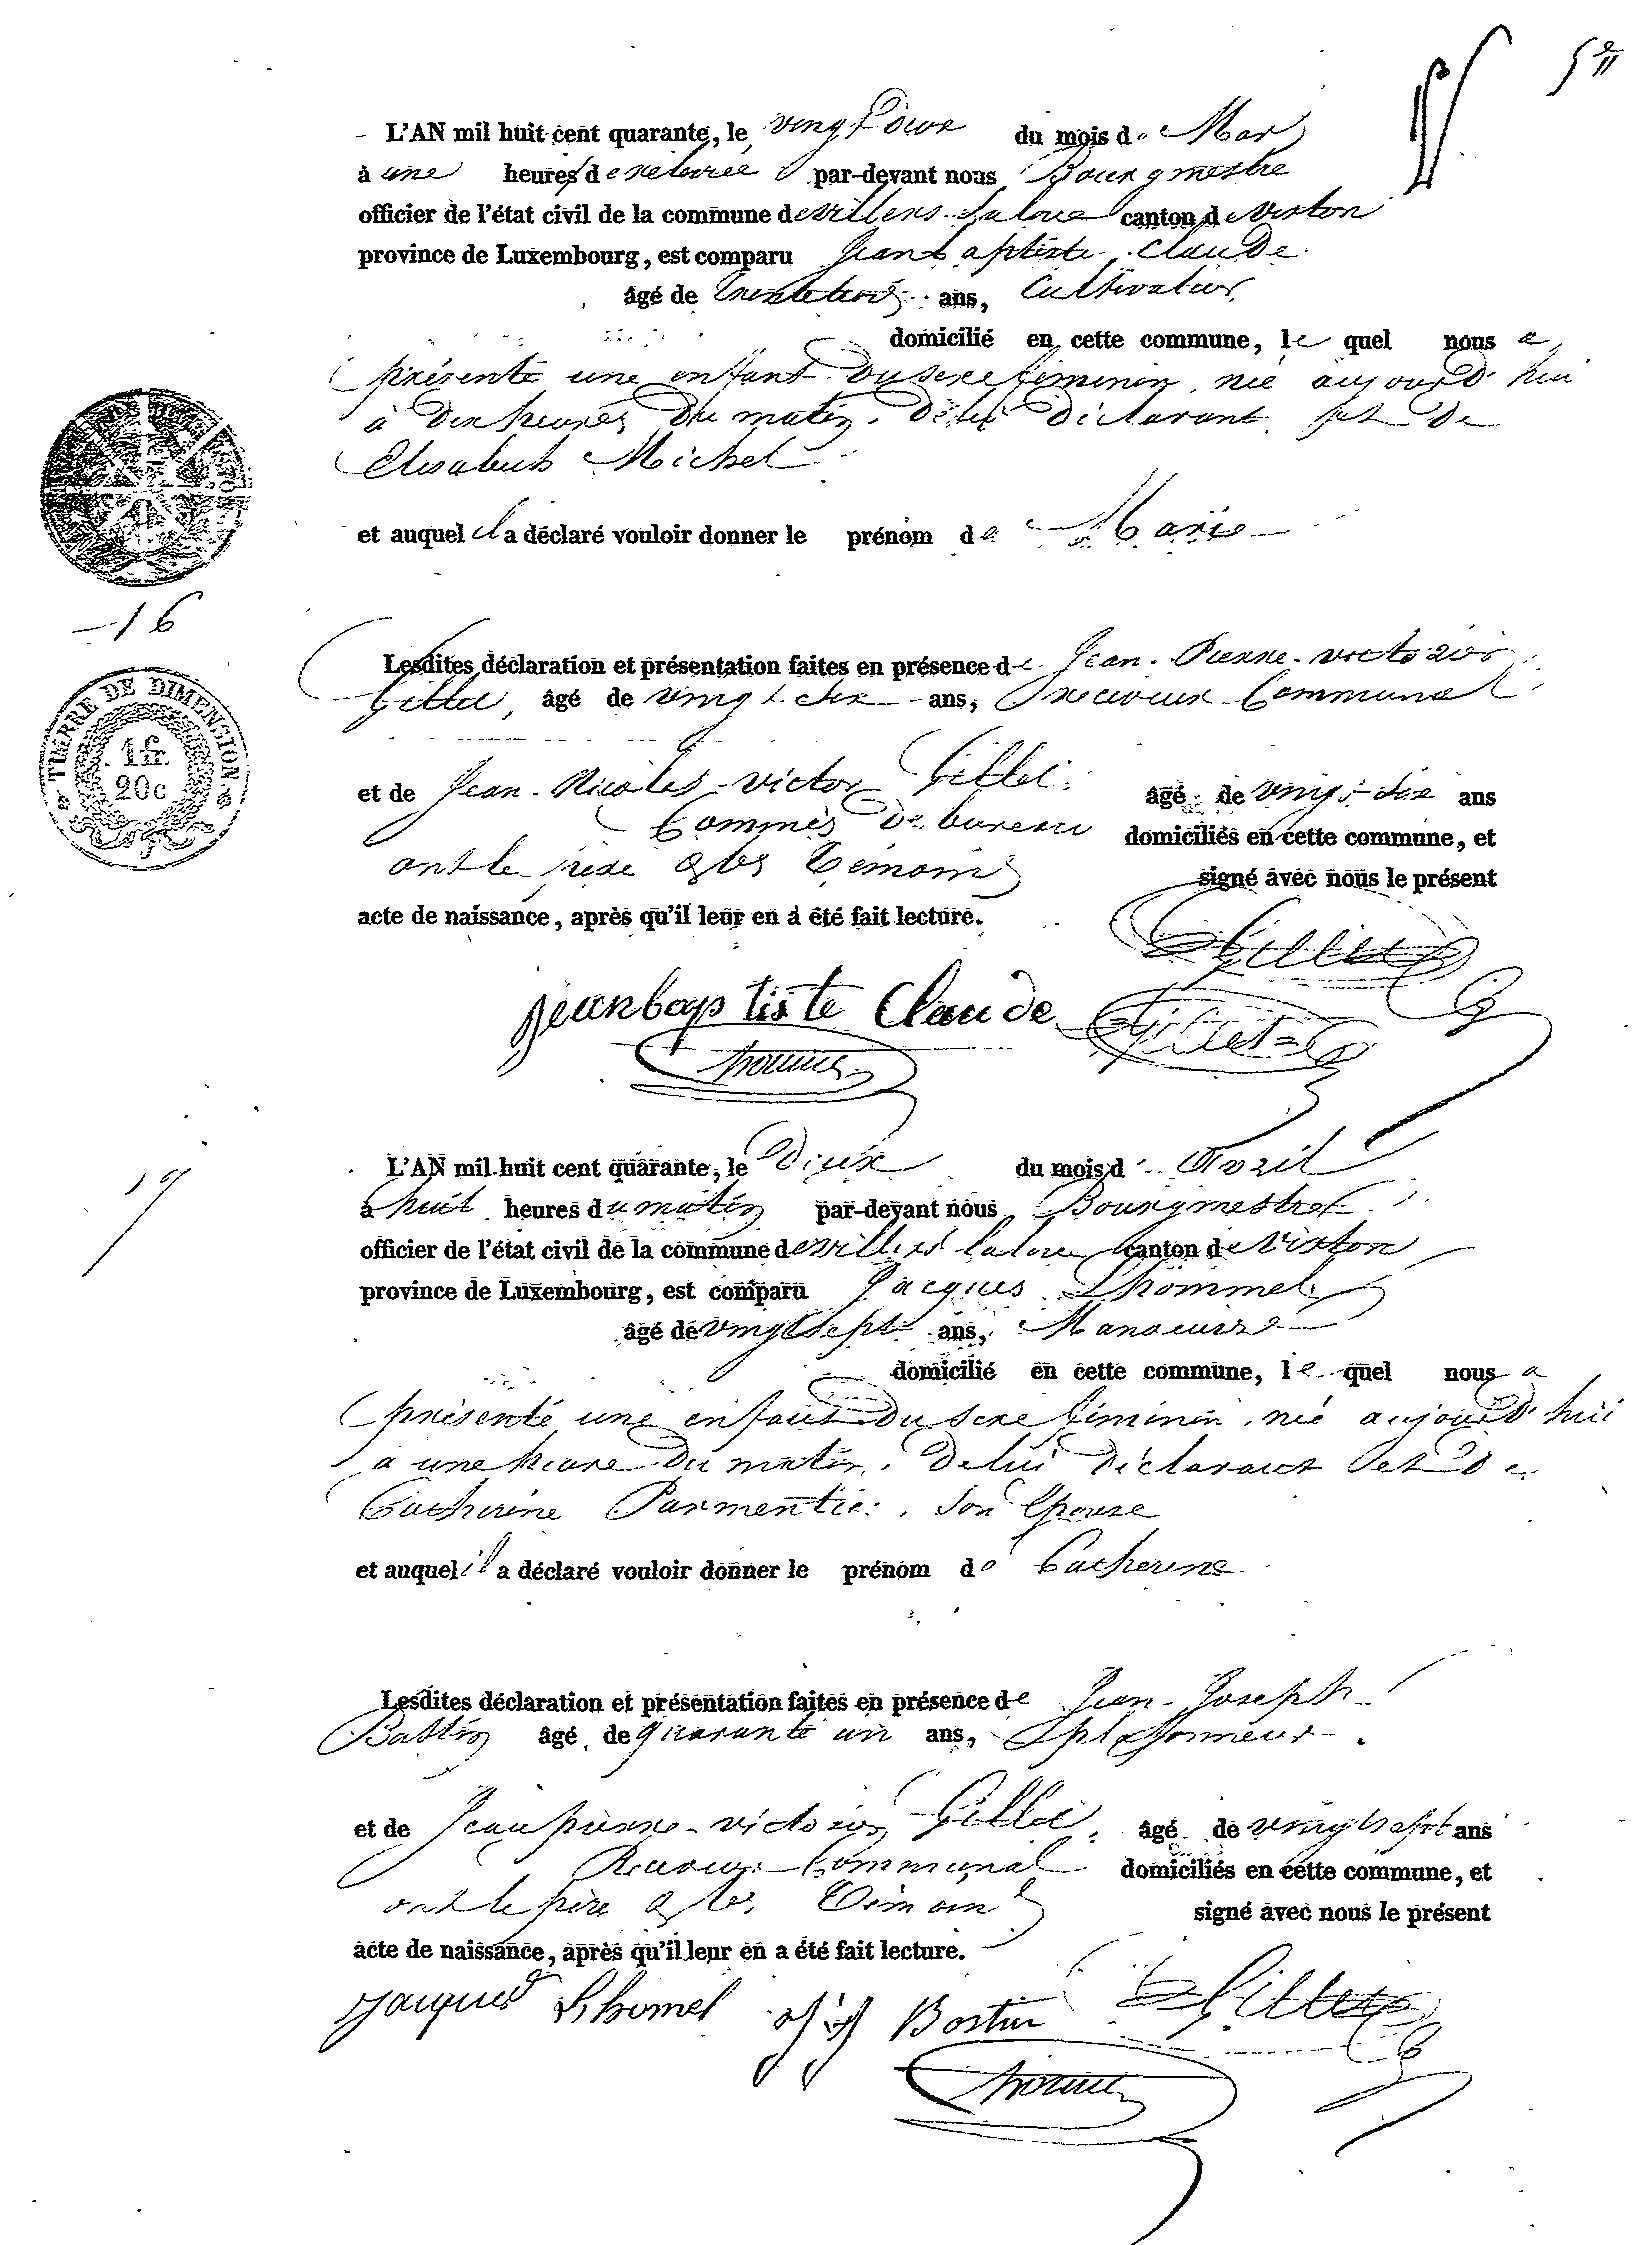 5e
L'AN mil huit cent quarante, le du mois de Mars
à une heures de relevée par-devant nous Bourgmestre
officier de l'état civil de la commune de Villers-laloue canton de Virton
province de Luxembourg, est comparu Jean baptiste Claude
âgé de trente trois ans, Cultivateur
domicilié en cette commune, le quel nous a
présenté une enfant du sexe féminin, née aujourd'hui
à dix heures du matin, de lui déclarant et de
Elisabeth Michel
et auquel il a déclaré vouloir donner le prénom de Marie
16
Lesdites déclaration et présentation faites en présence de Jean-Pierre-victoire
Gillet, âgé de vingt six ans, receveur Communal
TIMBRE DE DIMENSION
1 fr.
20 c
et de Jean-Nicolas-victor Gillet âgé de vingt-six ans
Commis de bureau domiciliés en cette commune, et
ont le père & les témoins signé avec nous le présent
acte de naissance, après qu'il leur en a été fait lecture.
Gillet
jeanbaptiste Claude Gillet
19
L'AN mil huit cent quarante, le deux du mois d'Avril
à huit heures du matin par-devant nous Bourgmestre
officier de l'état civil de la commune de Villers laloue canton de Virton
province de Luxembourg, est comparu Jacques Lhommel
âgé de vingt sept ans, Manoeuvre
domicilié en cette commune, le quel nous a
présenté une enfant du sexe féminin, née aujourd'hui
a une heure du matin, de lui déclarant et de
Catherine Parmentier, son épouse
et auquel il a déclaré vouloir donner le prénom de Catherine
Lesdites déclaration et présentation faites en présence de Jean-Joseph
Bastin âgé de quarante un ans, plafonneur
et de Jean pierre-victoire Gillet, âgé de vingt sept ans
Receveur Communal domiciliés en cette commune, et
ont le père & les témoins signé avec nous le présent
acte de naissance, après qu'il leur en a été fait lecture.
jacques Lhomel J J Bastin Gillet